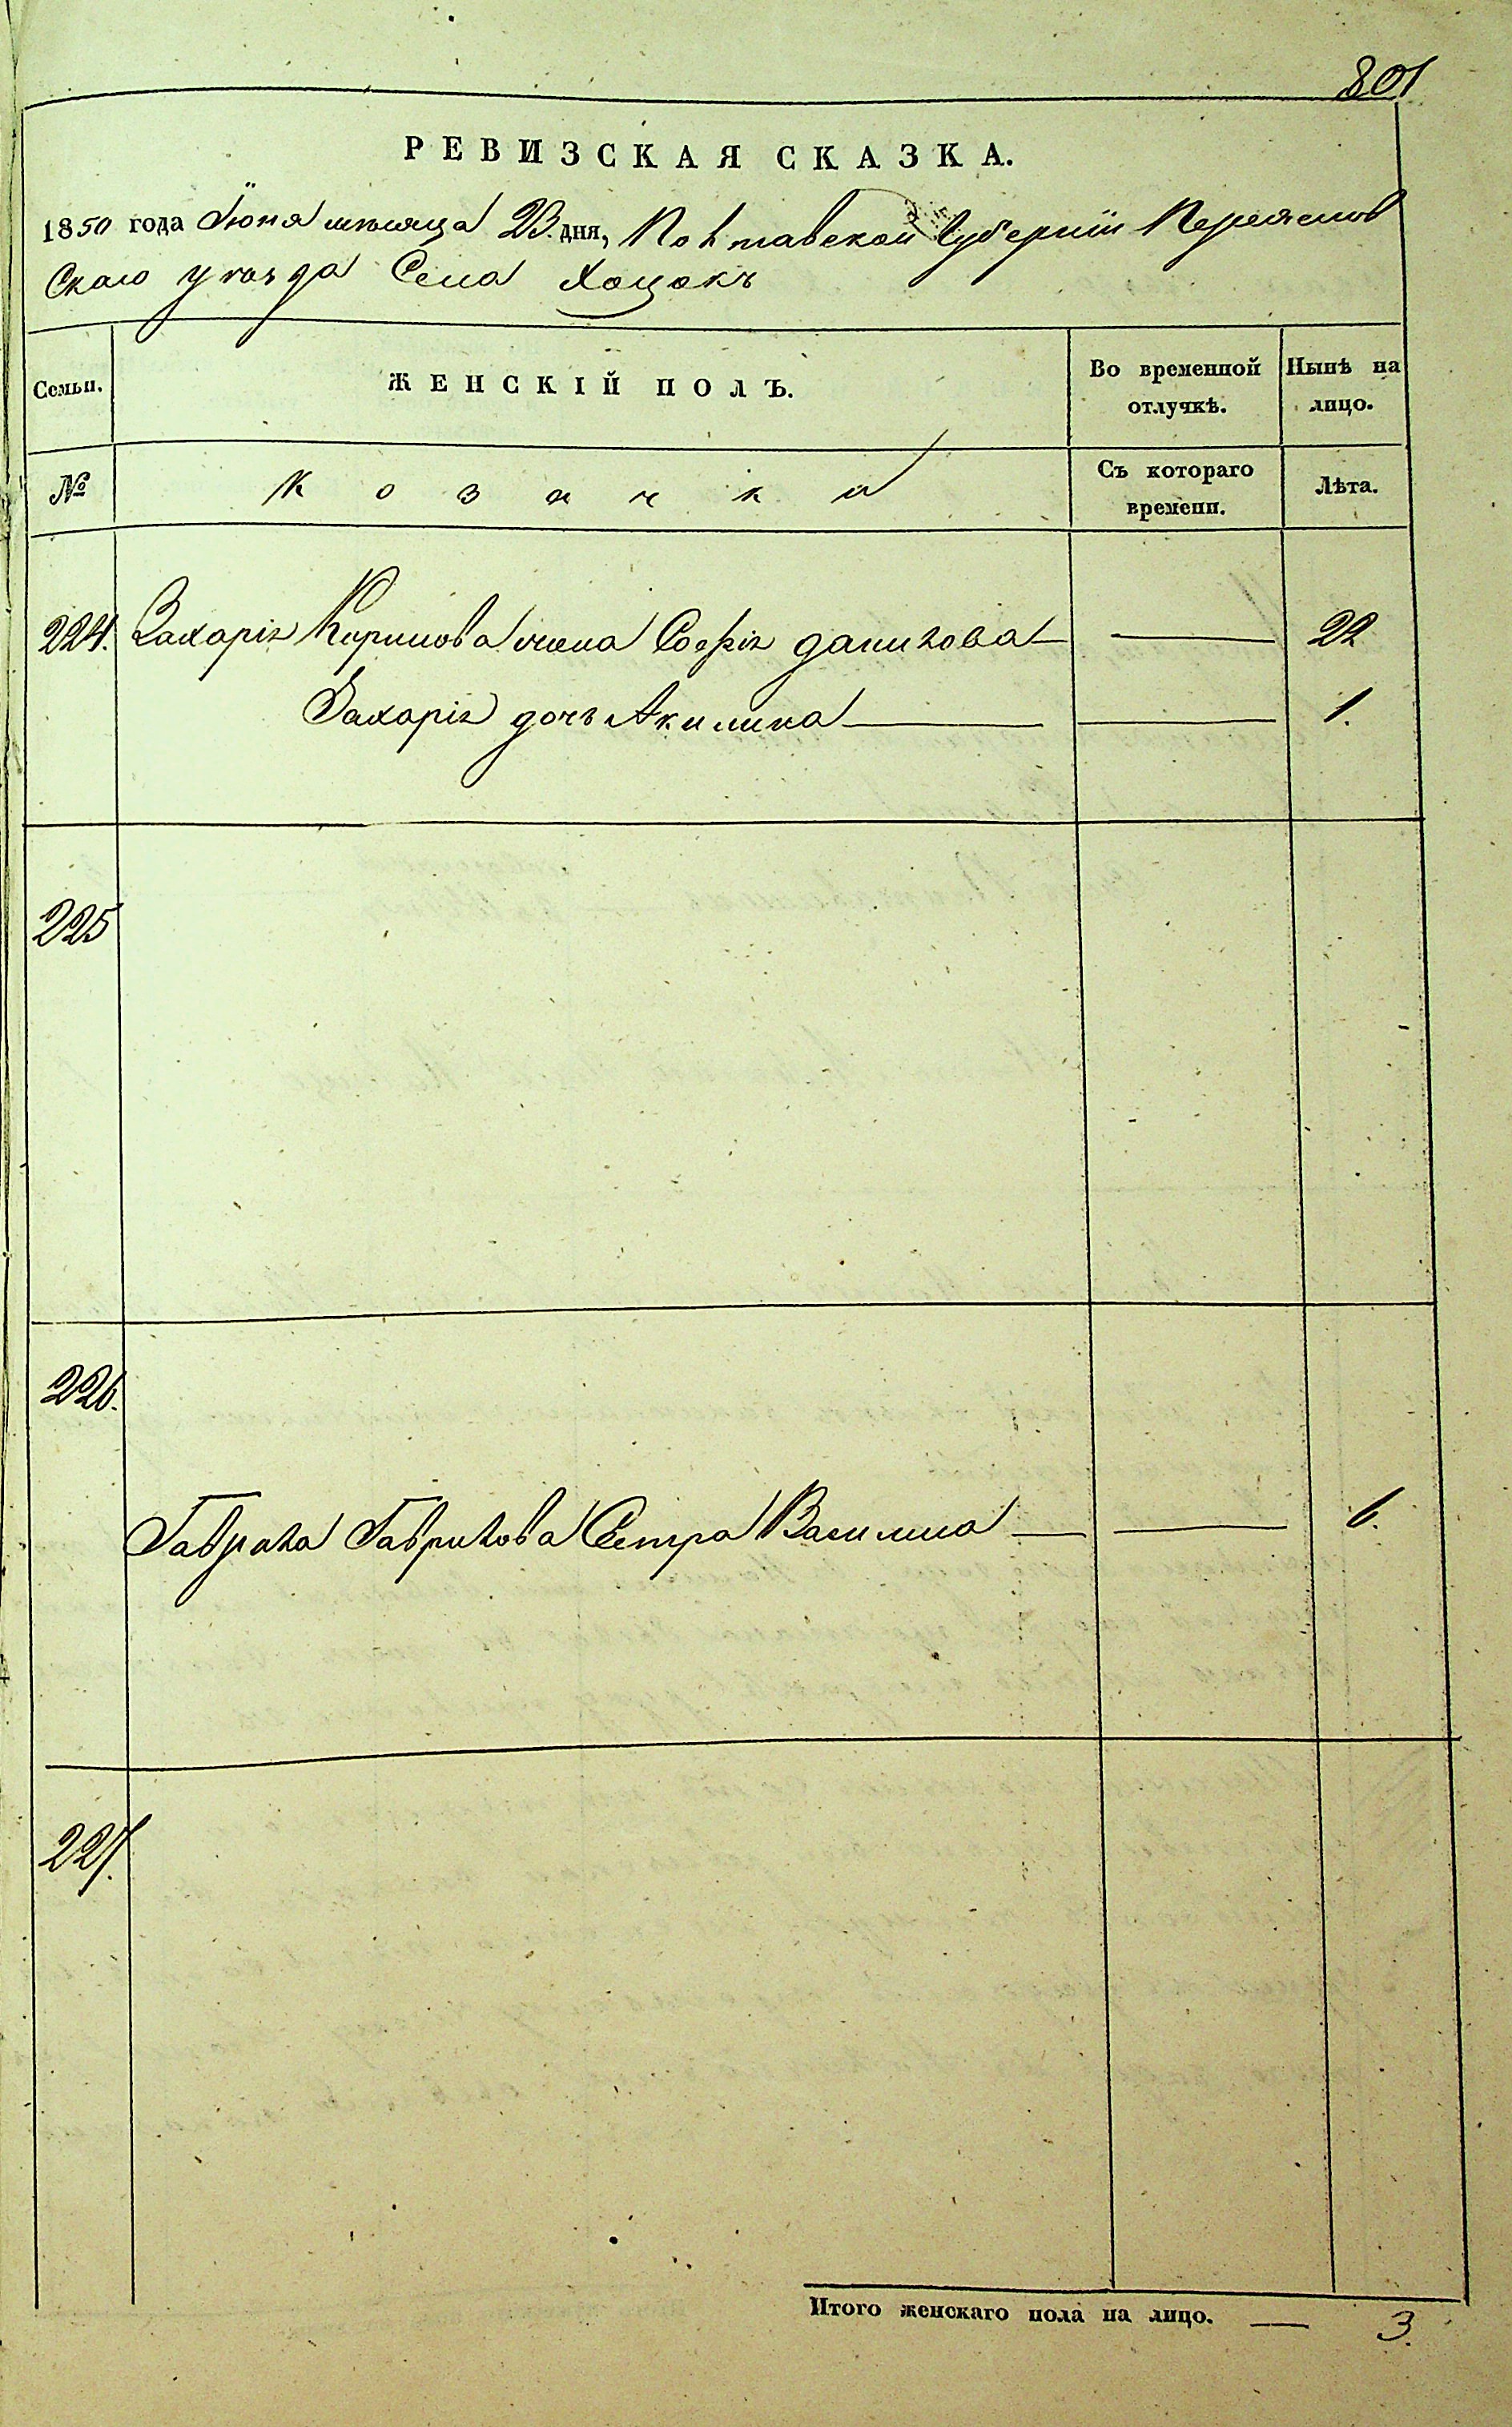 801
РЕВИЗСКАЯ СКАЗКА.
1850 года Іюня мѣсяца 23 дня, Полтавской Губерніи Переяслов
Скаго уѣзда Села Хоцокъ
Семьи. ЖЕНСКІЙ ПОЛЪ. Во временной отлучкѣ. Нынѣ на лицо.
№ Козачки Съ котораго времени. Лѣта.
224. Захарія Карпова жена Софія данилова — — 22
Захарія дочь Акилина — — 1.
225
226.
Гаврила Гаврилова Сестра Василиса — — 6.
227.
Итого женскаго пола на лицо. — 3.